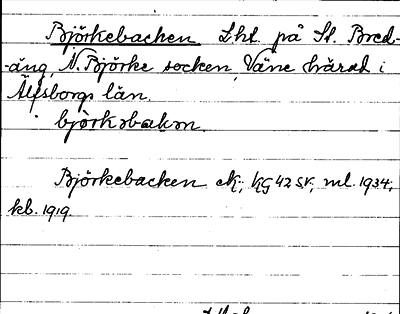 Björkebacken Lht. på St. Bred-
-äng, N. Björke socken, Väne härad i
Älfsborgs län.
björkəbakən.
Björkebacken ek; KG 42 SV; ml. 1934;
kb. 1919.